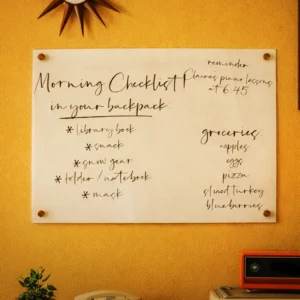 Morning Checklist!
in your backpack:
* library book
* snack
* snow gear
* folder / notebook
* mask
reminder
Claire's piano lessons
at 6:45
groceries:
apples
eggs
pizza
sliced turkey
blueberries